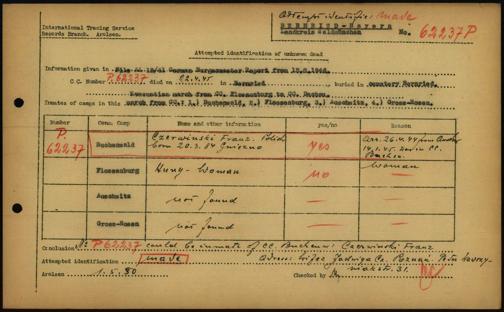 International Tracing Service
Records Branch. Arolsen.
Attempt. identific: made
BERNRIED-Bayern
Landkreis Waldmünchen
No. 62237P
Attempted identification of unknown dead
Information given in German Burgermaster Report from
C.C. Number P.62237 died on 22.4.45 in Bernried, buried in cemetery Bernried.
Evacuation march from CC. Flossenburg to CC. Dachau.
Inmates of camps in this march from CC. 1.) Buchenwald, 2.) Flossenburg, 3.) Auschwitz, 4.) Gross-Rosen.
Number Conc. Camp Name and other information yes/no Reason
P. 62237 Buchenwald Czerwinski Franz. Polish born 20.3.04 Gniezno yes
Flossenburg Hung- Woman no Woman
Auschwitz not found —
Gross-Rosen not found —
Conclusion: Nr P62237 could be inmate of CC. Buchenw. Czerwinski Franz
Attempted identification made
Arolsen 1.5.50 Checked by